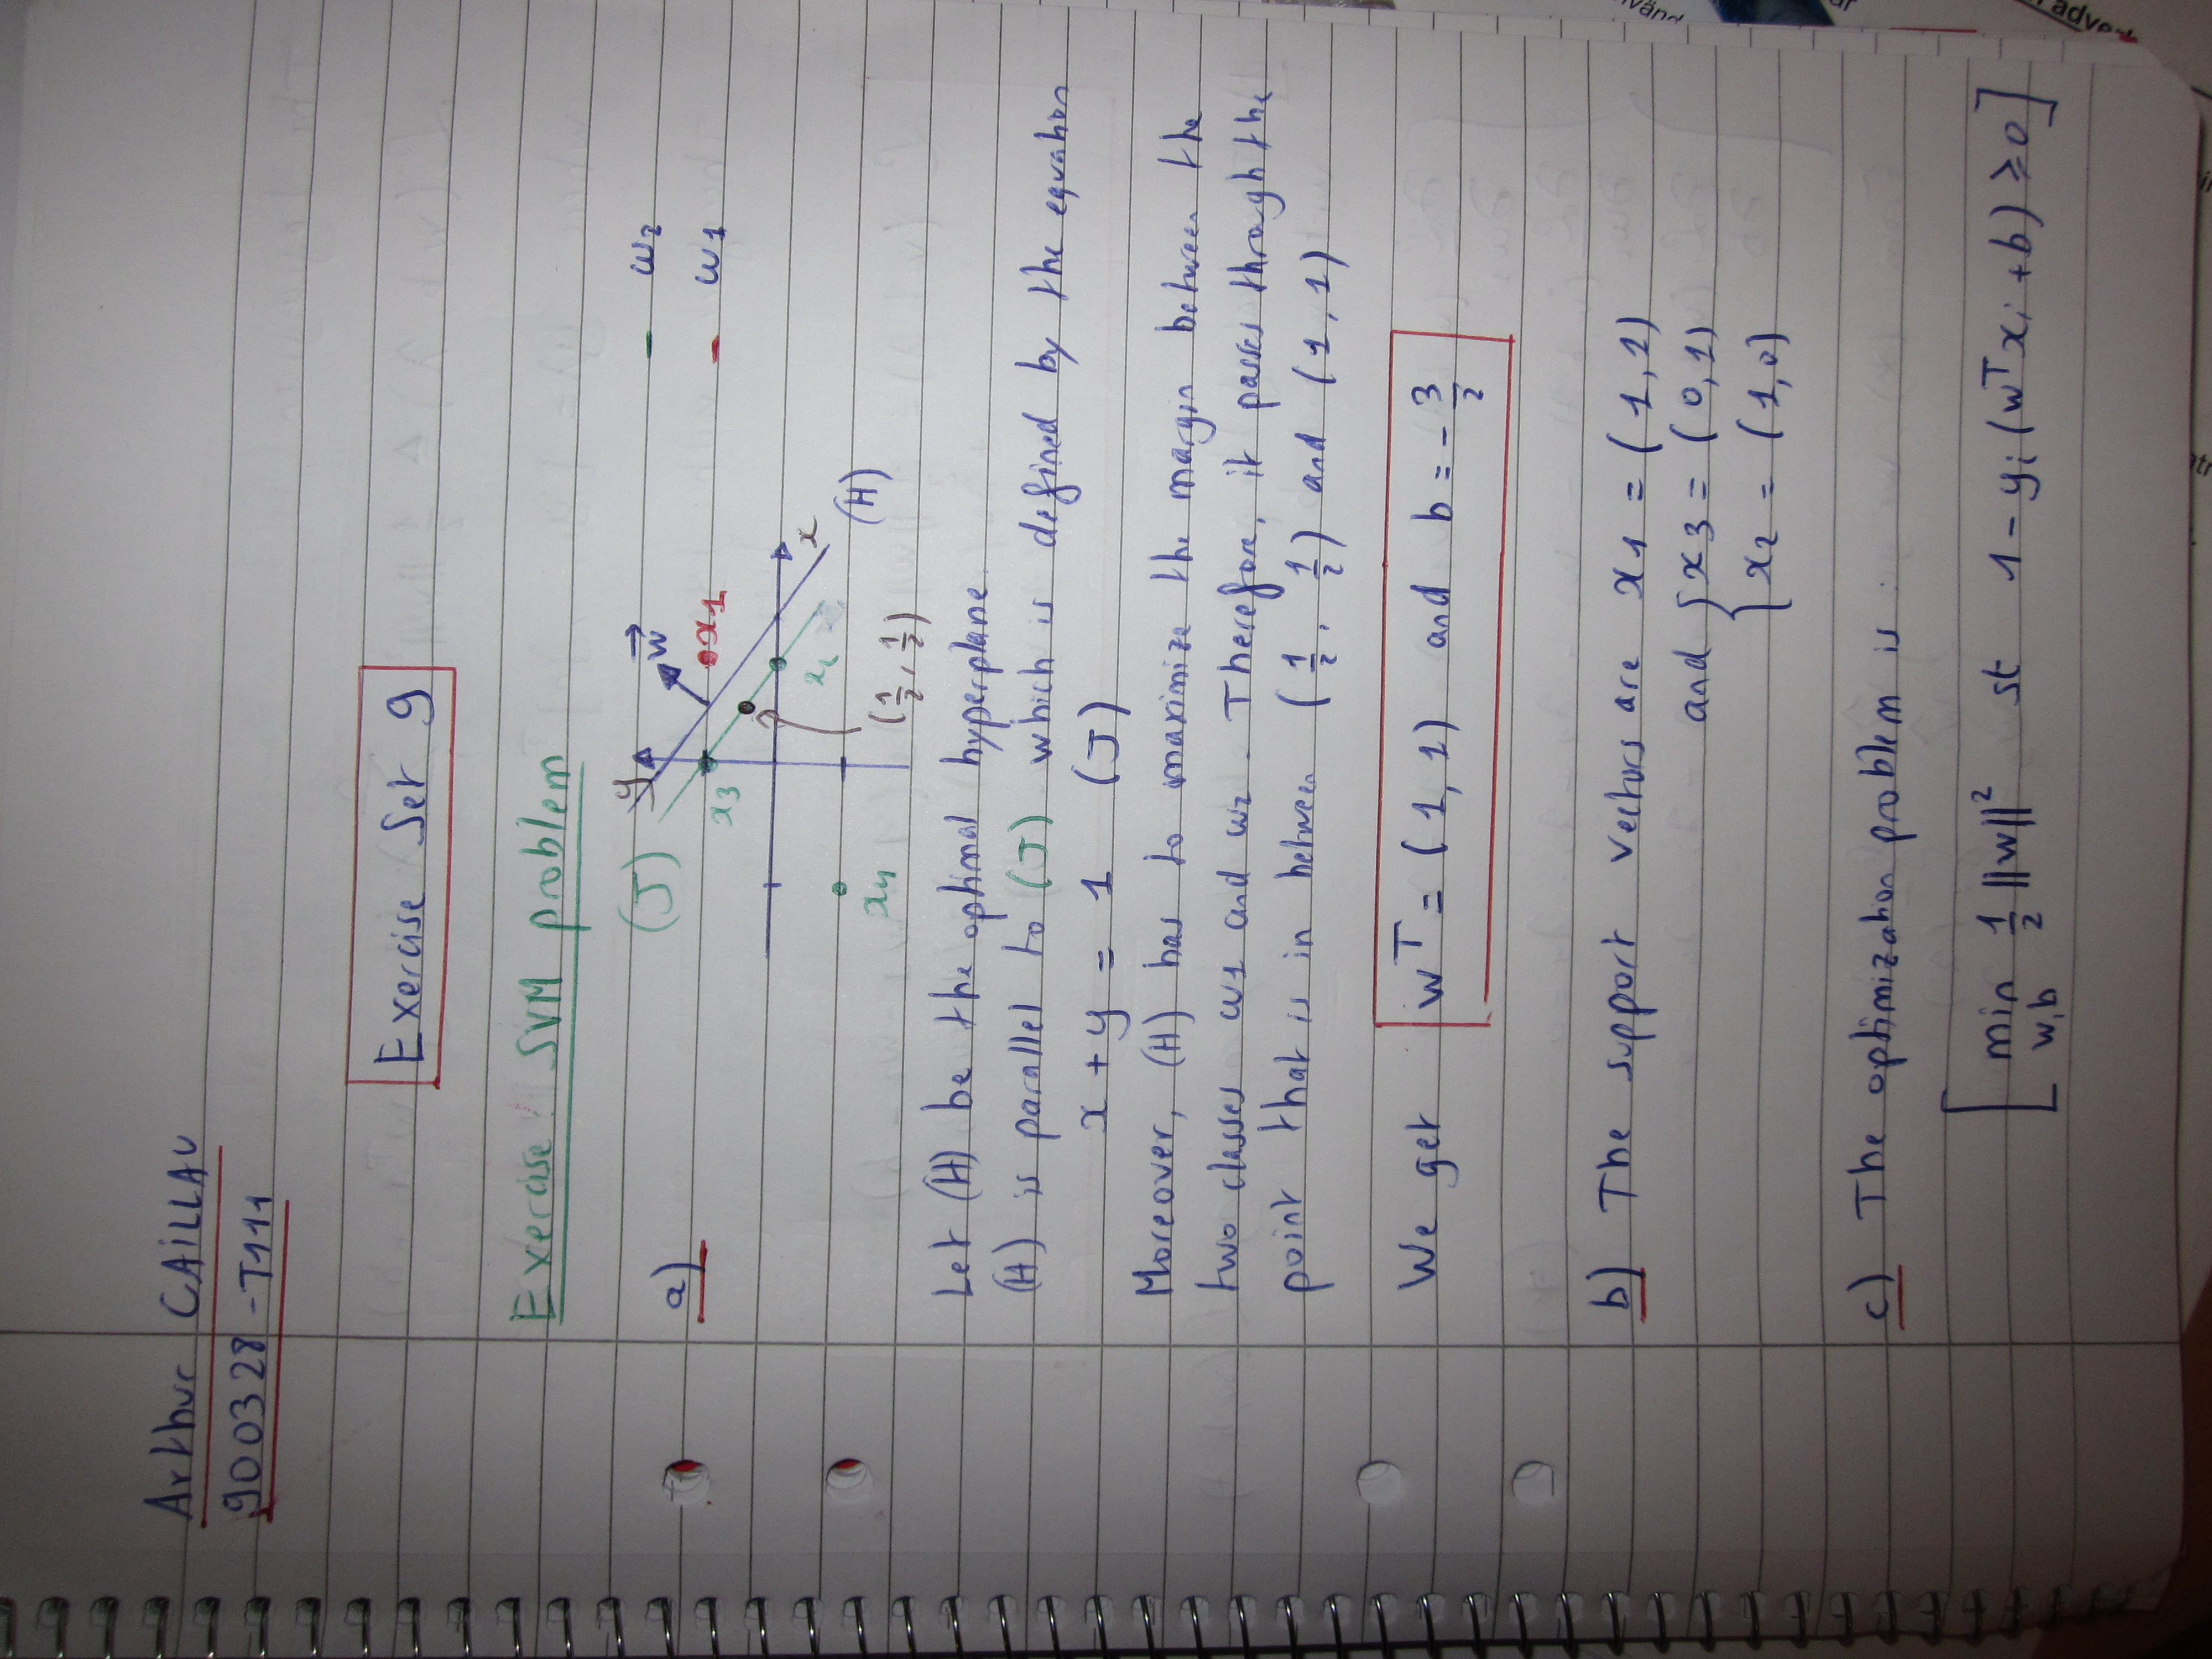 Arthur CAILLAU
900328-T111
Exercise Set 9
Exercise SVM problem
a)
(J)
y
w
ω2
x3
x1
ω1
x
x4
x2
(H)
(1/2, 1/2)
Let (H) be the optimal hyperplane.
(H) is parallel to (J) which is defined by the equation
x + y = 1 (J)
Moreover, (H) has to maximize the margin between the
two classes ω1 and ω2. Therefore, it passes through the
point that is in between (1/2, 1/2) and (1, 1)
We get w^T = (1, 1) and b = -3/2
b) The support vectors are x1 = (1, 1)
and { x3 = (0, 1)
x2 = (1, 0)
c) The optimization problem is :
[ min w,b 1/2 ||w||² st 1 - yi (w^T xi + b) ≥ 0 ]